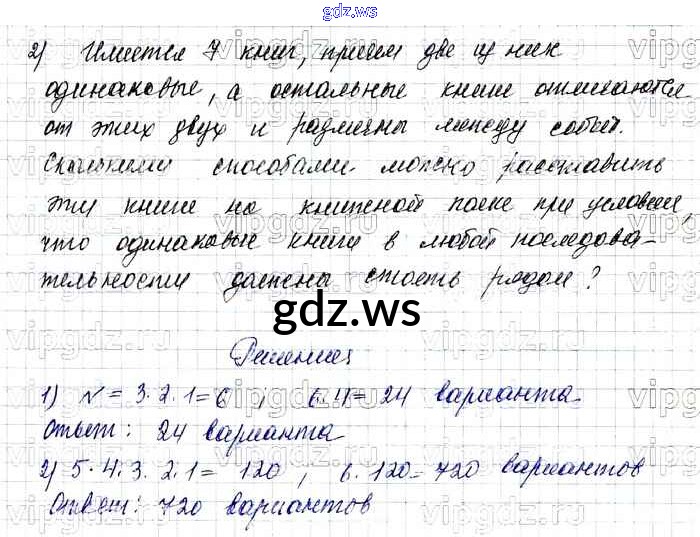 gdz.ws
2) Имеется 7 книг, причем две из них
одинаковые, а остальные книги отличаются
от этих двух и различны между собой.
Сколькими способами можно расставить
эти книги на книжной полке при условии,
что одинаковые книги в любой последова-
тельности должны стоять рядом?
gdz.ws
Решение
1) N = 3·2·1=6 , 6·4=24 варианта
Ответ: 24 варианта
2) 5·4·3·2·1= 120 , 6·120=720 вариантов
Ответ: 720 вариантов